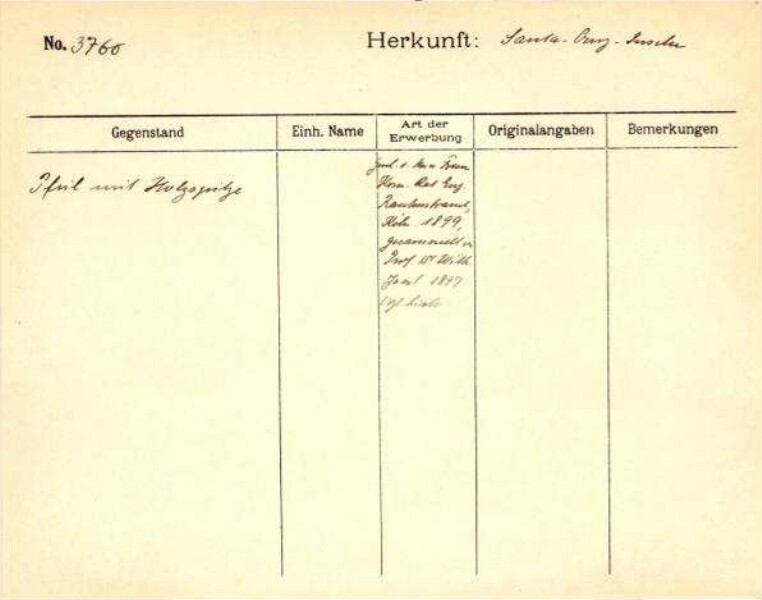 No. 3760
Herkunft: Santa-Cruz-Inseln
Gegenstand
Einh. Name
Art der Erwerbung
Originalangaben
Bemerkungen
Pfeil mit Holzspitze
Gesch. v. Frau
Kom. Rat Eug.
Rautenstrauch,
Köln 1899,
gesammelt v.
Prof Dr Wilh
Joest 1897